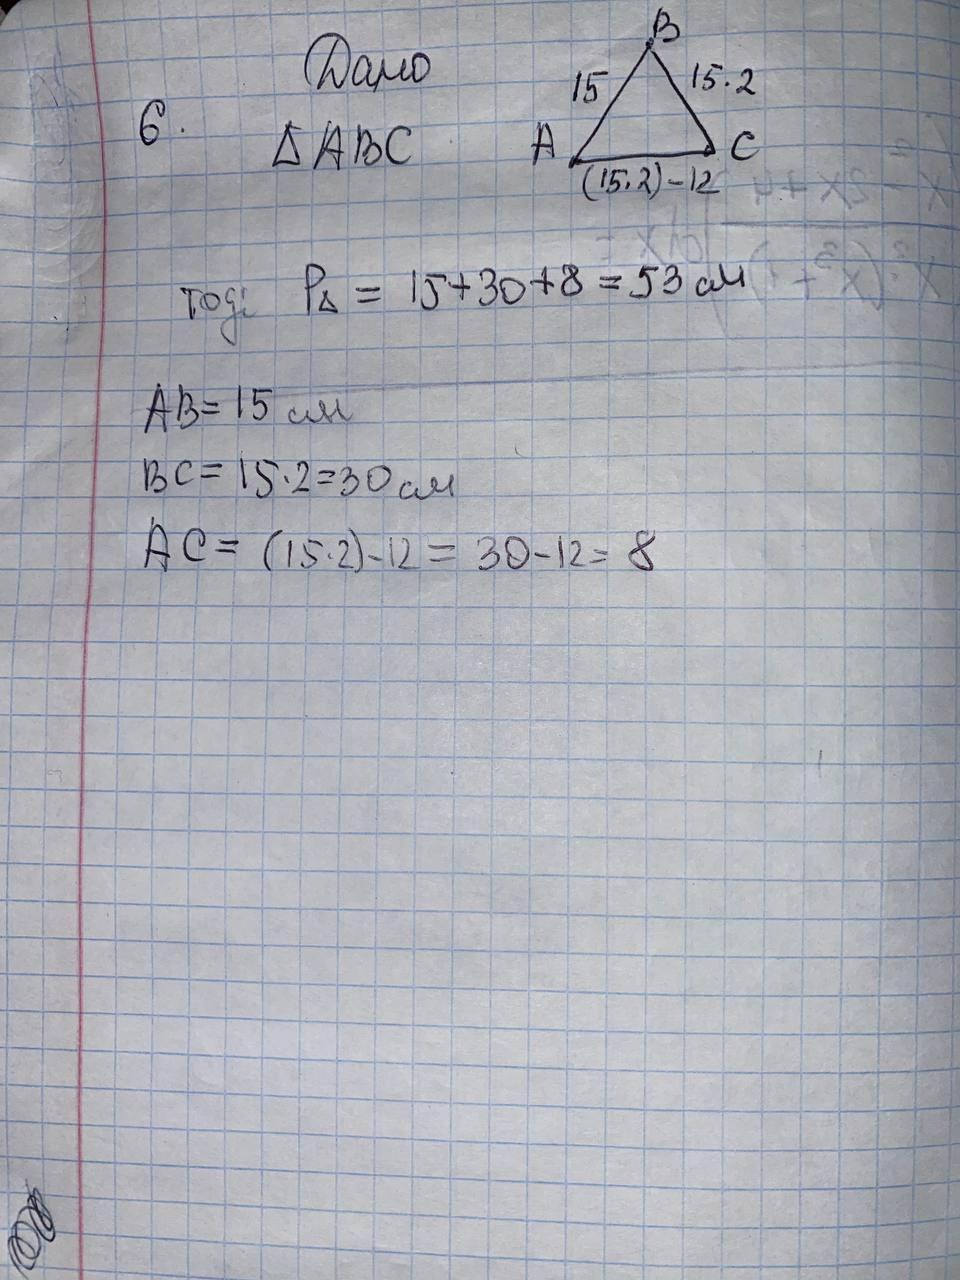 Дано
6.
△ABC
B
15
15·2
A
C
(15·2)-12
тоді P△ = 15+30+8=53 см
AB= 15 см
BC= 15·2=30 см
AC= (15·2)-12= 30-12= 8